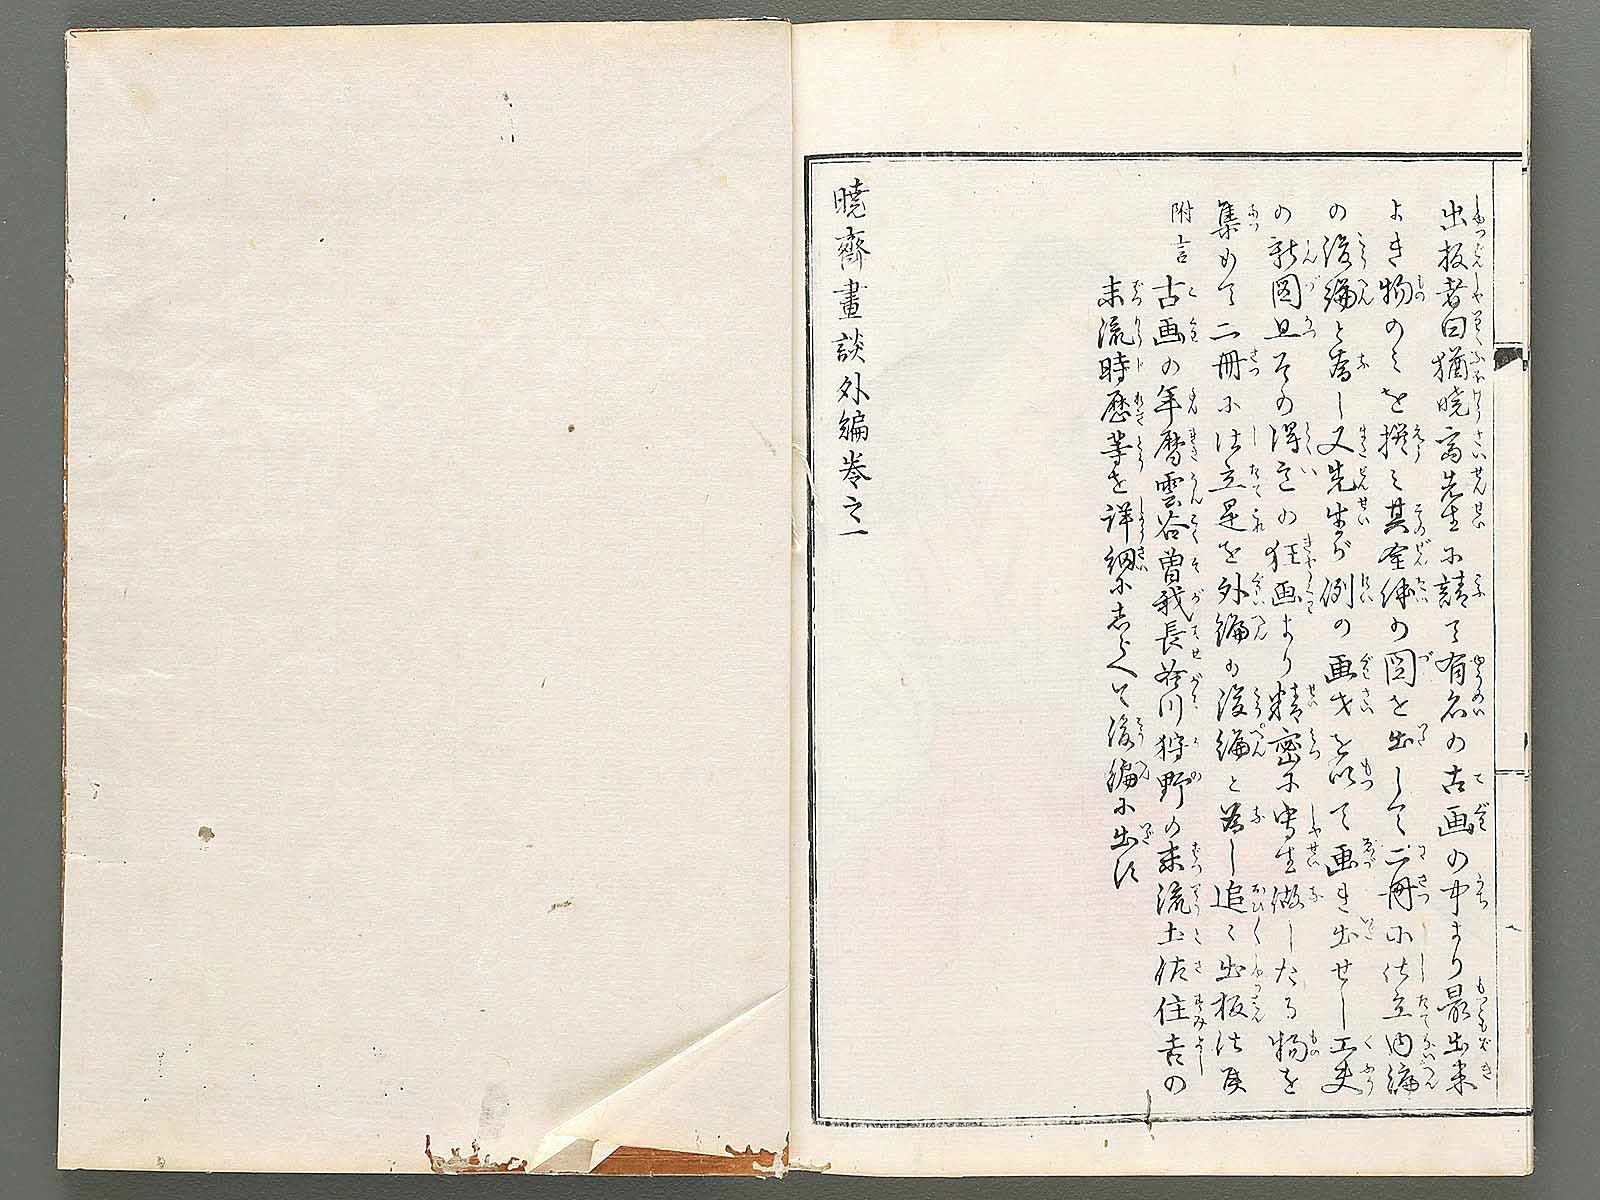 出板者曰猶暁斎先生に請て有名の古画の中より最出来
よき物のミを撰ミ其全体の図を出して二冊に仕立内編
の後編と為し又先生が例の画才を以て画き出せし工夫
の新図且その得意の狂画より精密に写生做したる物を
集めて二冊に仕立是を外編の後編と為し追々出板仕候
附言
古画の年暦雲谷曽我長谷川狩野の末流土佐住吉の
末流時歴等を詳細にしらべて後編に出す
暁齋畫談外編巻之一